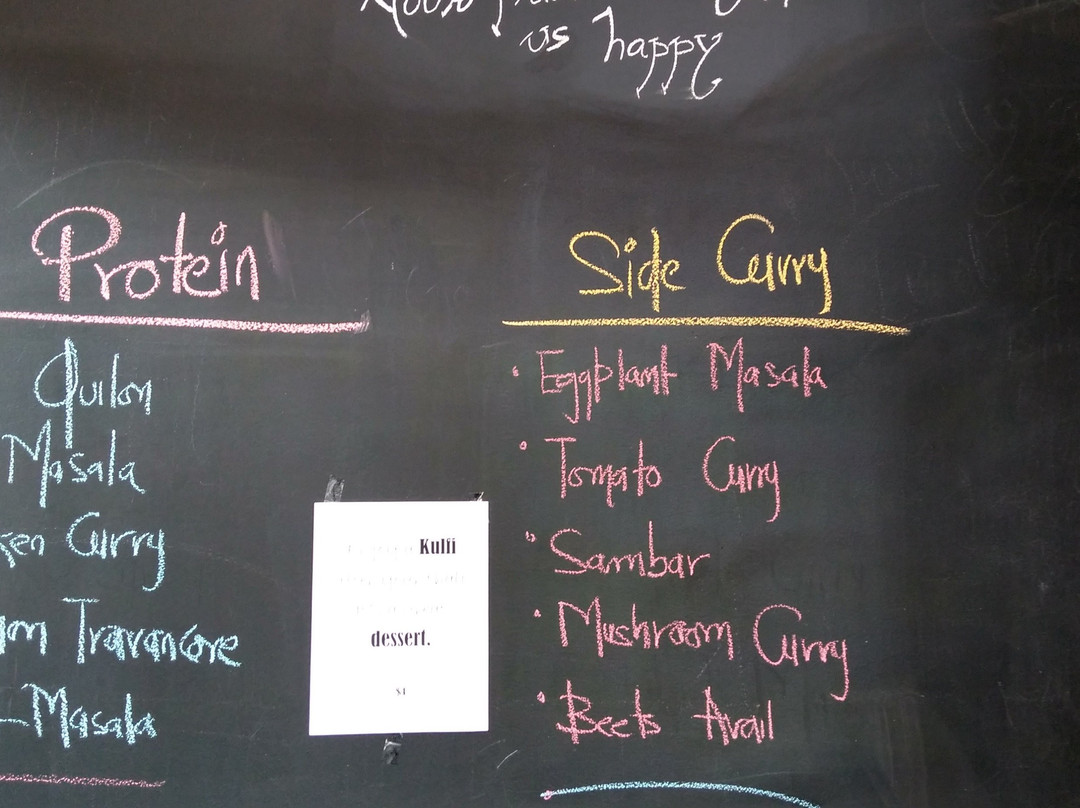 us happy
Protein
Quilon
Masala
Curry
Travancore
Masala
Kulfi
dessert.
$4
Side Curry
• Eggplant Masala
• Tomato Curry
• Sambar
• Mushroom Curry
• Beets Avail